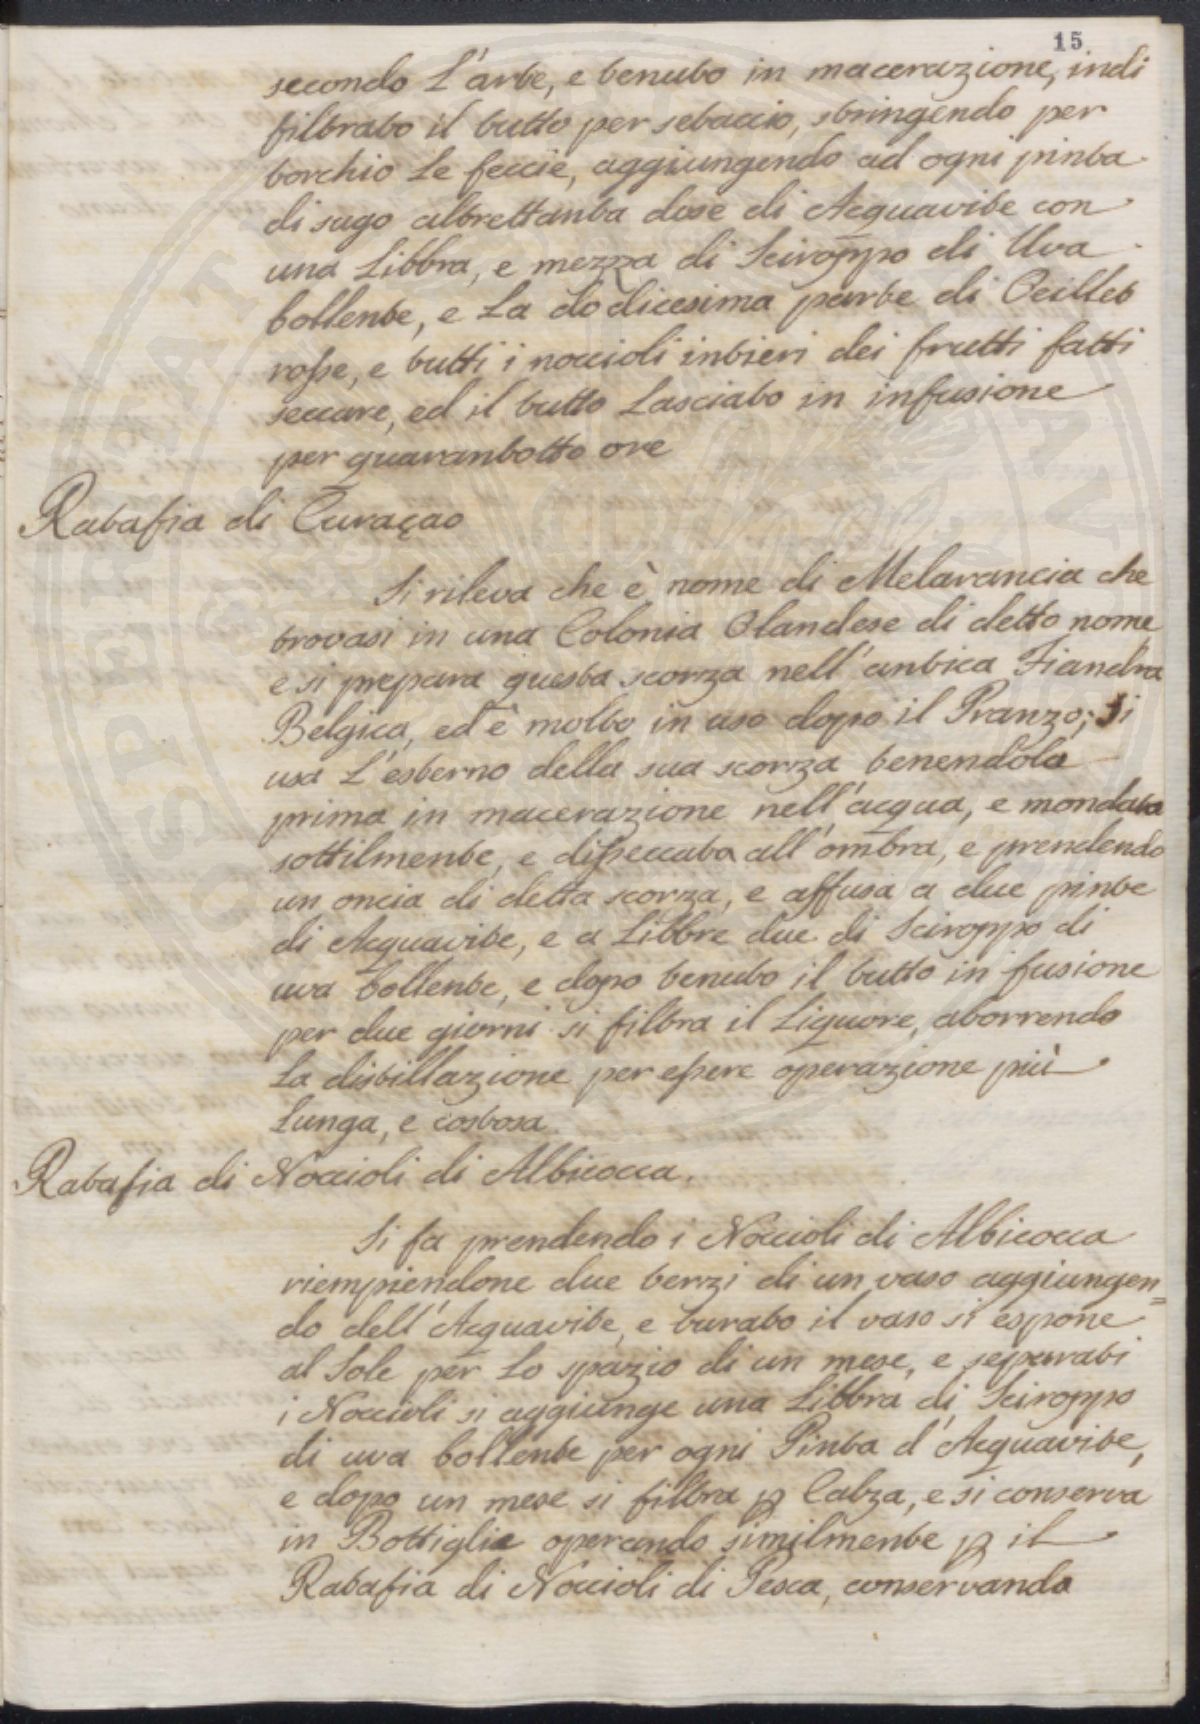 15
secondo l'arte, e tenuto in macerazione, indi
filtrato il tutto per setaccio, stringendo per
torchio le feccie, aggiungendo ad ogni pinta
di sugo altrettanta dose di Acquavite con
una Libbra, e mezza di Sciroppo di Uva
bollente, e la dodicesima parte di Oeillet
rosse, e tutti i noccioli intieri dei frutti fatti
seccare, ed il tutto lasciato in infusione
per quarantotto ore
Ratafia di Curaçao
Si rileva che è nome di Melarancia che
trovasi in una Colonia Olandese di detto nome
e si prepara questa scorza nell'antica Fiandra
Belgica, ed è molto in uso dopo il Pranzo; si
usa l'esterno della sua scorza tenendola
prima in macerazione nell'acqua, e mondata
sottilmente, e disseccata all'ombra, e prendendo
un oncia di detta scorza, e affusa a due pinte
di Acquavite, e a Libbre due di Sciroppo di
uva bollente, e dopo tenuto il tutto in fusione
per due giorni si filtra il Liquore, aborrendo
la distillazione per essere operazione più
lunga, e costosa.
Ratafia di Noccioli di Albicocca.
Si fa prendendo i Noccioli di Albicocca
riempiendone due terzi di un vaso aggiungen=
do dell'Acquavite, e turato il vaso si espone
al Sole per lo spazio di un mese, e separati
i Noccioli si aggiunge una Libbra di Sciroppo
di uva bollente per ogni Pinta d'Acquavite,
e dopo un mese si filtra p Calza, e si conserva
in Bottiglie operando similmente p il
Ratafia di Noccioli di Pesca, conservando